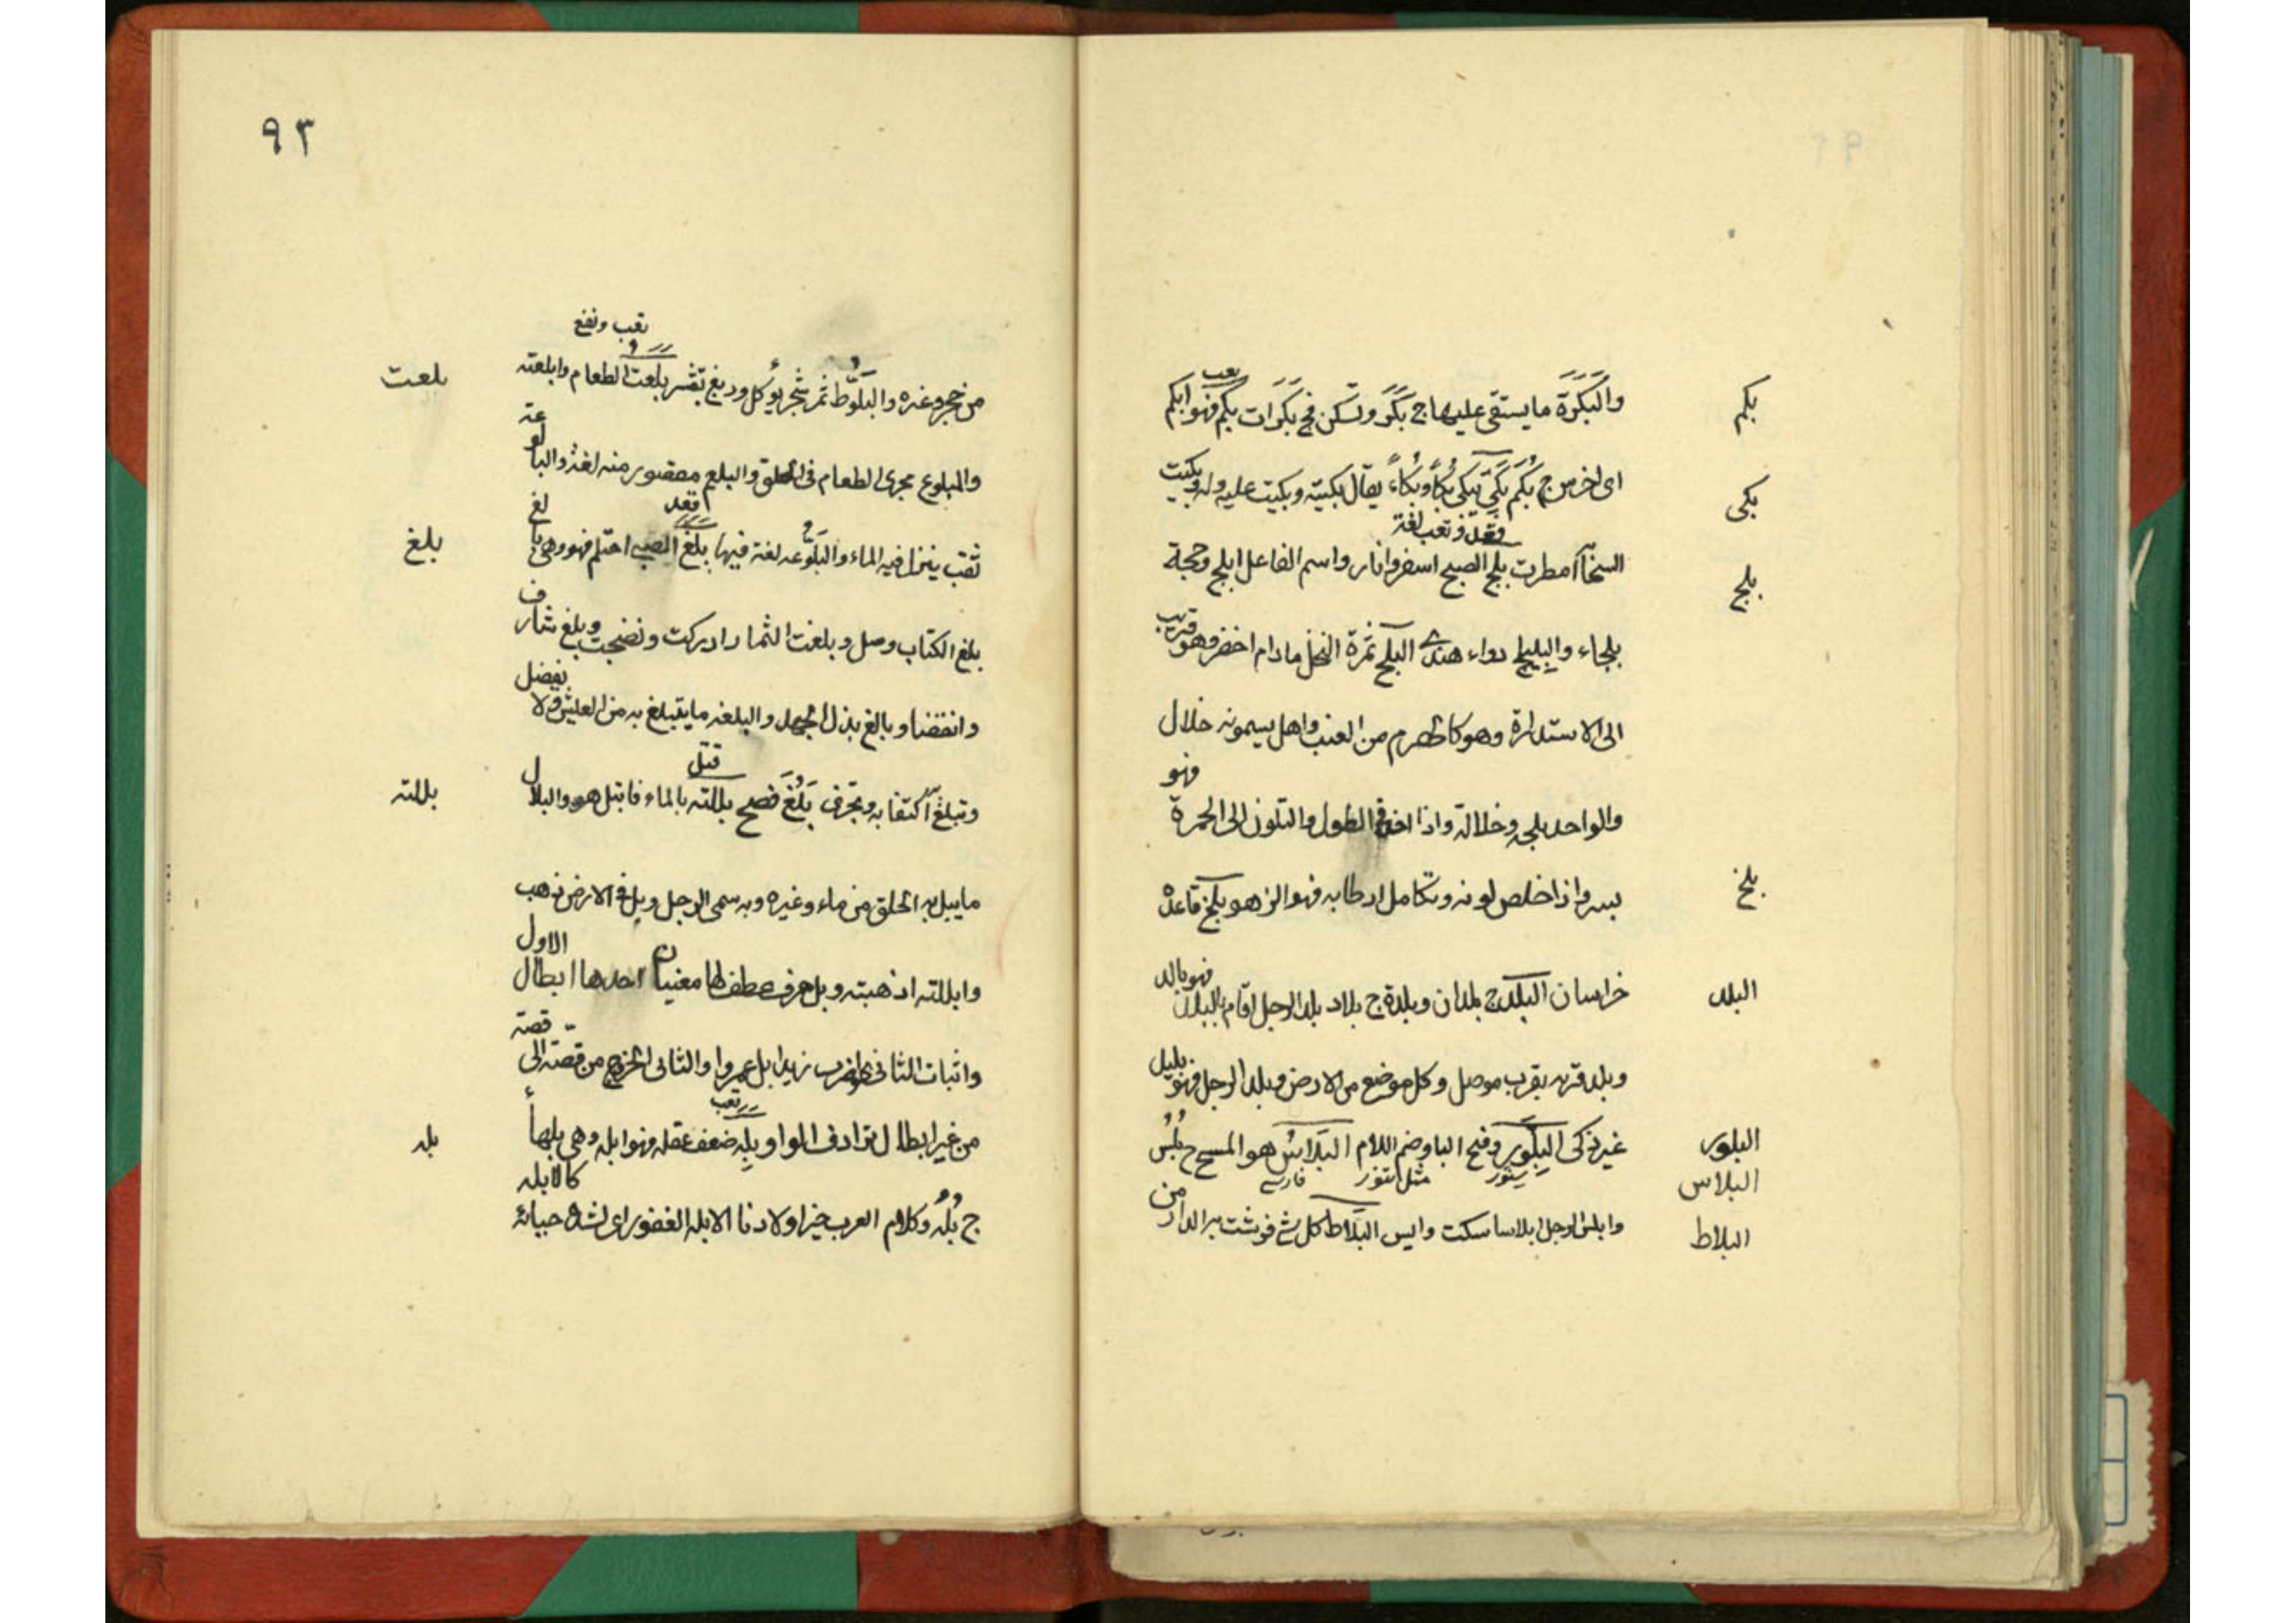 والبَكَرَة ما يستقى عليها ج بَكَر وتسكن فج بَكَرَات بكم فهو ابكم
تعب
بكم
اى اخرس ج بُكم بَكَى يبكى بُكاً وبُكاءً يقال بكيته وبكيت عليه وله وبكيت
بكى
قعد وتعب لغة
السحآ امطرت بلج الصبح اسفر وانار واسم الفاعل ابلج وحجة
بلج
بلجاء والبليلج دواء هندى البلح ثمرة النخل مادام اخضر وهو قريب
الى الاستدارة وهو كالحصرم من العنب واهل يسمونه خلال
والواحد بلحه وخلالة واذا اخذ فى الطول والتلون الى الحمرة فهو
بسر واذا خلص لونه وتكامل ارطابه فهو الزهو بلخ قاعدة
بلخ
خراسان البلد ج بلدان وبلدة ج بلاد بلد الرجل اقام بالبلد فهو بالد
البلد
وبلد قريه بقرب موصل وكل موضع من الارض وبلد الرجل فهو بليل
غير ذكى البِلَّور وفتح الباوضم اللام البَلَاسُ هو المسح ج بُلُس
البلور
سنور مثل تنور فارسى
البلاس
وابلس الرجل ابلاسا سكت وايس البَلَاط كل شى فرشت به الدار من
البلاط
٩٣
تعب ونفع
من حجر وغيره والبَلُّوط ثمر شجر يؤكل ودبغ بقشر بلعت الطعام وابلعته
بلعت
والمبلوع مجرى الطعام فى الحلق والبلع مقصور منه لغة والبالوعة
قعد
ثقب ينزل فيه الماء والبَلُّوعه لغة فيها بلغ الصبى احتلم فهو وهى بالغ
بلغ
بلغ الكتاب وصل وبلغت الثمار ادركت ونضجت وبلغ شارف
وانقضا وبالغ بذل الجهد والبلغه ما يتبلغ به من العيش ولا يفضل
قتل
وتبلغ اكتفا به وتجزى بَلُغَ فصح بللته بالماء فابتل هو والبلال
بللته
ما يبل به الحلق من ماء وغيره وبه سمى الرجل وبل فى الارض ذهب
وابللته اذهبته وبل حرف عطف لها معنيان احدها ابطال الاول
واثبات الثانى اضرب زيدا بل عمروا والثانى الخروج من قصة الى قصة
تعب
من غير ابطال ترادف الواو بله ضعف عقله فهو ابله وهى بلهأ
بله
ج بُلْه وكلام العرب خير اولادنا الابله الغفور اى لشدة حيائه كالابله